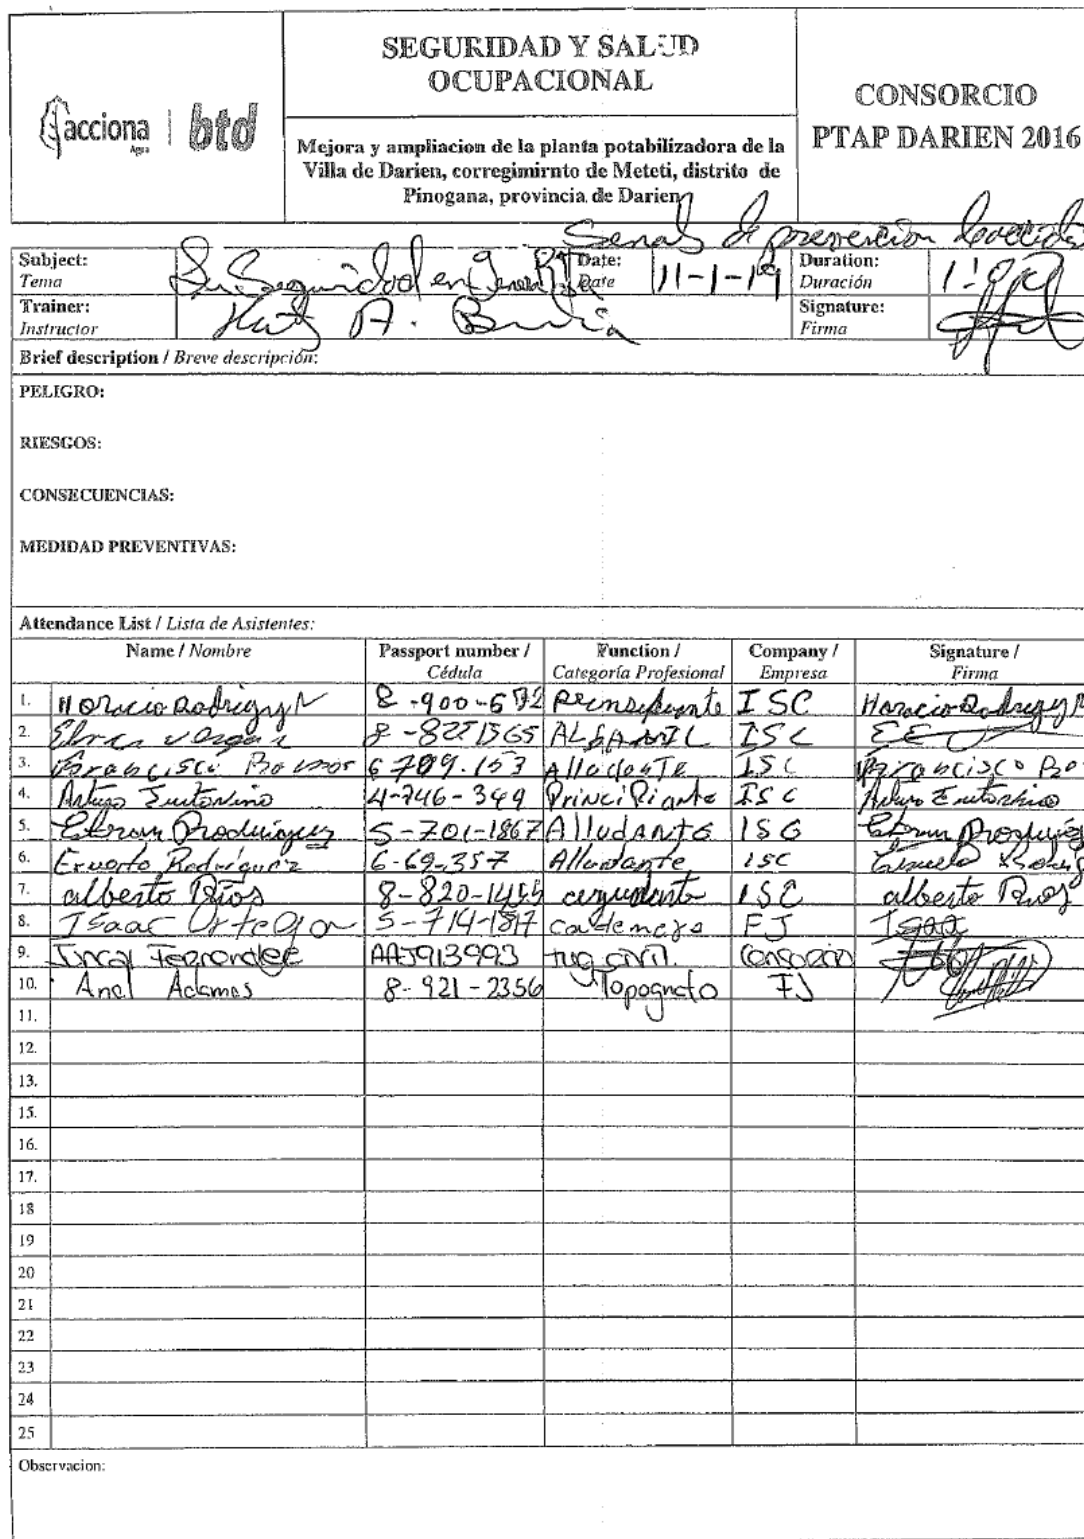 acciona
Agua
btd
SEGURIDAD Y SALUD
OCUPACIONAL
Mejora y ampliacion de la planta potabilizadora de la
Villa de Darien, corregimirnto de Meteti, distrito de
Pinogana, provincia de Darien
CONSORCIO
PTAP DARIEN 2016
Senal de prevencion
Subject:
Tema
Su Seguridad en General
Date:
Date
11-1-19
Duration:
Duración
Trainer:
Instructor
A.
Signature:
Firma
Brief description / Breve descripción:
PELIGRO:
RIESGOS:
CONSECUENCIAS:
MEDIDAD PREVENTIVAS:
Attendance List / Lista de Asistentes:
Name / Nombre
Passport number /
Cédula
Function /
Categoría Profesional
Company /
Empresa
Signature /
Firma
1. Horacio Rodriguez 8-900-672 ISC Horacio Rodriguez
2. ALBANIL ISC
3. 6 709.153 Alludante ISC
4. Arturo 4-746-349 PrinciPiante ISC Arturo
5. 5-701-1867 Alludante ISG
6. Rodriguez 6-69-357 Alludante ISC
7. alberto Rios 8-820-1455 ISC alberto Rios
8. Isaac Ortega 5-714-1817 cadenero FJ Isaac
9. AAJ913993 civil. Consorcio
10. Anel Adames 8-921-2356 Topografo FJ
11.
12.
13.
15.
16.
17.
18
19
20
21
22
23
24
25
Observacion: